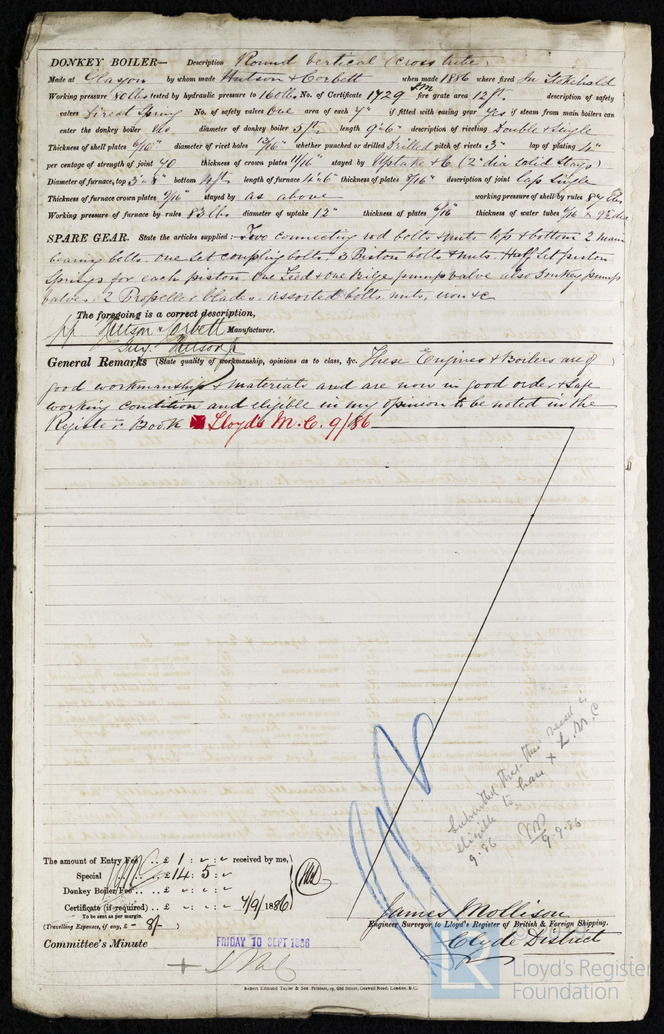 DONKEY BOILER— Description Round Vertical Cross tube.
Made at Glasgow by whom made Hutson & Corbett when made 1886 where fixed In Stokehold
Working pressure 80 lbs tested by hydraulic pressure to 160 lbs. No. of Certificate 1729 fire grate area 12 ft. description of safety
valves Direct Spring No. of safety valves One area of each 7" if fitted with easing gear Yes if steam from main boilers can
enter the donkey boiler diameter of donkey boiler 5 ft. length 9'-6" description of riveting Double & Single
Thickness of shell plates 6/16" diameter of rivet holes 13/16" whether punched or drilled Drilled pitch of rivets 3" lap of plating 4"
per centage of strength of joint 70 thickness of crown plates 11/16" stayed by Uptake & 6 (2" dia solid stays)
Diameter of furnace, top 3'-8" bottom 4 ft length of furnace 4'-6" thickness of plates 8/16" description of joint Lap Single
Thickness of furnace crown plates 9/16" stayed by as above working pressure of shell by rules lbs
Working pressure of furnace by rules 83 lbs diameter of uptake 12" thickness of plates 6/16" thickness of water tubes 6/16 & 9" dia
SPARE GEAR. State the articles supplied:— Two connecting rod bolts & nuts top & bottom 2 main
bearing bolts. One set coupling bolts. 3 Piston bolts & nuts. Half set piston
springs for each piston. One Feed & one Bilge pump valve also Donkey pump
valves. 2 Propeller blades. assorted bolts, nuts, iron &c
The foregoing is a correct description,
pp Hutson & Corbett Manufacturer.
Guy. Hutson jr
General Remarks (State quality of workmanship, opinions as to class, &c. These Engines & Boilers are of )
good workmanship & materials and are now in good order & safe
working condition and eligible in my opinion to be noted in the
Register Book Lloyd's M.C. 9/86
Submitted that this vessel is
eligible to have + L.M.C
9.86
9-9-86
The amount of Entry Fee .. £ 1 : - : - received by me,
Special .. .. £ 14 : 5 : -
Donkey Boiler Fee .. .. £ - : - : -
Certificate (if required) .. £ - : - : - 7/9/1886
To be sent as per margin.
(Travelling Expenses, if any, £ - 8/- )
James Mollison
Engineer Surveyor to Lloyd's Register of British & Foreign Shipping.
Clyde District
Committee's Minute FRIDAY 10 SEPT 1886
+ L.M.C.
Robert Edmund Taylor & Son Printers, 19, Old Street, Goswell Road, London, E.C.
LR Lloyd's Register
Foundation